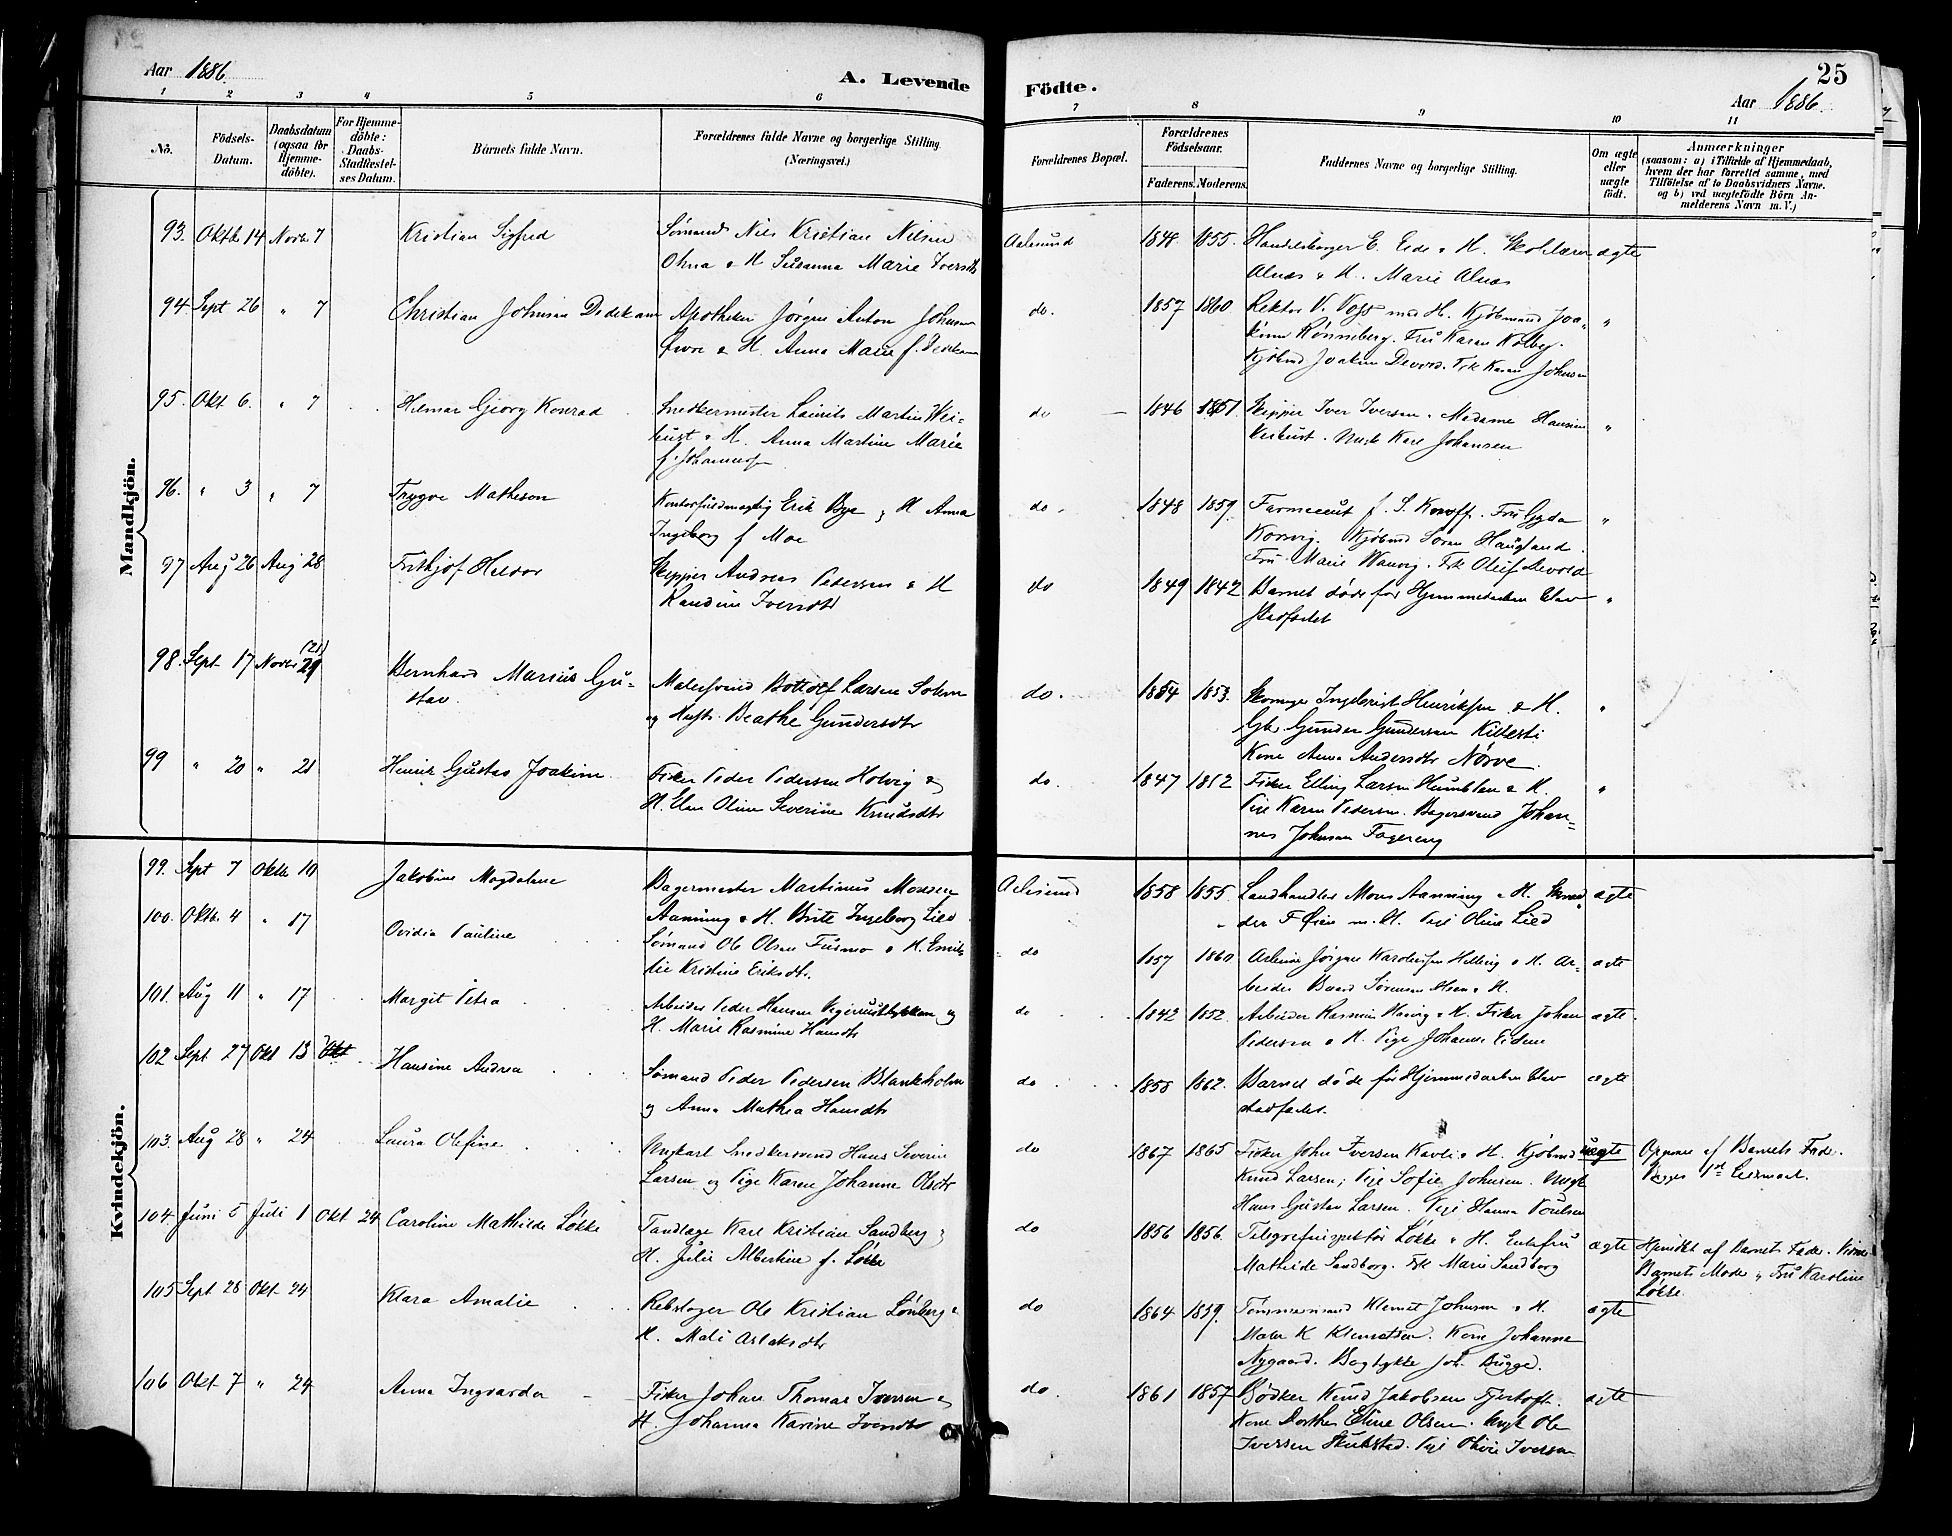 Aar 1886.
A. Levende Födte.
25
Aar 1886.
1 2 3 4 5 6 7 8 9 10 11
No.
Födsels-Datum.
Daabsdatum (ogsaa for Hjemme-döbte).
For Hjemme-döbte: Daabs-Stadfæstel-ses Datum.
Barnets fulde Navn.
Forældrenes fulde Navne og borgerlige Stilling (Næringsvei.)
Forældrenes Bopæl.
Forældrenes Födselsaar.
Faderens. Moderens.
Faddernes Navne og borgerlige Stilling.
Om ægte eller uægte födt.
Anmærkninger
(saasom: a) i Tilfælde af Hjemmedaab,
hvem der har forrettet samme, med
Tilföielse af to Daabsvidners Navne.
og b) ved uægtefödte Börn An-
melderens Navn m.V.)
Mandkjön.
93. Oktb 14 Novb. 7 Kristian Sigfred Sømand Nils Kristian Nilsen Aalesund 1848 1855. Handelsborger E. Eide & H. Skolelærer ægte
Ohna & H Susanna Marie Iversdtr Alnæs & H. Marie Alnæs
94 Sept 26 " 7 Christian Johnsen Dedekam Apotheker Jørgen Anton Johnsen do. 1857 1860 Rektor V. Voss med H. Kjøbmand Joa- "
Øwre & H. Anna Marie f. Dedekam kim Rønneberg. Fru Karen Kolbej.
Kjøbmd Joakim Devold. Frk Karen Johnsen
95. Okt 6. " 7 Hilmar Georg Konrad Snedkermester Laurits Martin Wei- do 1846 1851. Skipper Iver Iversen. Madame Hansine "
hust & H. Anna Martine Marie Veihust. Ungk Karl Johansen
f. Johannesen
96. " 3 " 7 Trygve Matheson Kontorfuldmægtig Erik Bye & H Anna do. 1848 1859. Farmaceut f. S. Korsff. Fru Gyda "
Ingeborg f Moe Korsvig. Kjøbmd Søren Haugland.
Fru Marie Wanvig. Frk Oluf Devold
97 Aug 26 Aug 28 Frithjof Heldor Skipper Andreas Pedersen & H do 1849 1842 Barnet døde før Hjemmedaaben blev "
Randine Iversdtr stadfæstet
98. Sept 17 Novbr (21) 21 Bernhard Marius Gu- Malersvend Bottolf Larsen Solem do. 1854 1853. Skomager Ingebrigt Henriksen & H. "
stav. og Hustr. Beathe Gundersdtr Gbr. Gunder Gundersen Kibbesti
Kone Anna Andersdtr Nørve.
99 " 20 " 21 Henrik Gustav Joakim Fisker Peder Pedersen Holvig & do. 1847 1852 Fisker Elling Larsen Humblen & H. "
H. Elen Oline Severine Knudsdtr Pige Karen Pedersen. Bagersvend Johan-
nes Johnsen Fagereng
Kvindekjön.
99. Sept 7 Oktb 10 Jakobine Magdalene Bagermester Martinus Monsen Aalesund 1858 1855. Landhandler Mons Aamning & H. Skræd- ægte
Aamning & H. Brite Ingeborg Lied der F Øien m. H. Pige Oline Lied
100. Oktb. 4 " 17 Ovidia Pauline Sømand Ole Olsen Fusmo & H. Emi- do 1857 1860 Arbeider Jørgen Karolussen Hellevig & H. Ar- ægte
lie Kristine Eriksdt. beider Baard Sørensen Steen & H.
101. Aug 11 " 17 Margit Petra Arbeider Peder Hansen og do 1842 1852. Arbeider Rasmus Horvig & H. Fisker Johan ægte.
H. Marie Rasmine Hansdtr Pedersen & H. Pige Johanne Eidem
102 Sept 27 Okt 13 Okt Hansine Andrea Sømand Peder Pedersen Blankholm do 1858 1862. Barnet døde før Hjemmedaaben blev ægte
og Anna Mathea Hansdtr stadfæstet.
103. Aug 28 " 24 Laura Olefine Ungkarl Snedkersvend Hans Severin do 1867 1865 Fisker John Iversen Kavli & H. Kjøbmd uægte Opgivne af Barnets Fader.
Larsen og Pige Karen Johanne Olsdtr Knud Larsen; Pige Sofie Johnsen. Ungk Begges 1st Leiermaal.
Hans Gustav Larsen. Pige Hanna Poulsen
104. Juni 5 Juli 1 Okt 24 Caroline Mathilde Løkke Tandlæge Karl Kristian Sandberg & do 1856 1856. Telegrafinspektør Løkke & H. Enkefru ægte Hjemdøbt af Barnets Fader. Vidner
H. Julie Albertine f. Løkke Mathilde Sandborg. Frk Marie Sandborg Barnets Moder & Fru Karoline
Løkke.
105 Sept 28 Okt 24 Klara Amalie Rebslager Ole Kristian Lønberg & do 1864 1859. Tømmermand Klemet Johnsen & H. ægte
H. Mali Aslaksdtr Maler K Klemetsen. Kone Johanne
Nygaard. Bogtykker Joh. Bugge.
106 Okt 7 " 24 Anna Ingvarda Fisker Johan Thomas Iversen & do. 1861 1857 Bødker Knud Jakobsen Fjertoft. ægte
H. Johanna Karine Iversdtr Kone Dorthea Eline Olsen. Ungk Ole
Iversen Stubstad. Pige Olivie Iversen